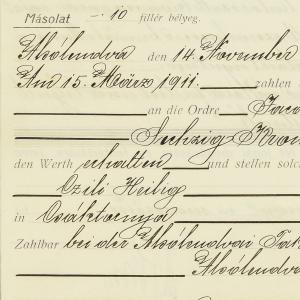 Másolat —·10 fillér bélyeg.
Alsólendva den 14. November
Am 15. März 1911. zahlen
an die Ordre
Sechzig Kron
den Werth erhalten und stellen solc
Czili Heilig
in Csáktornya
Zahlbar bei der Alsólendvai Tak
Alsólendva